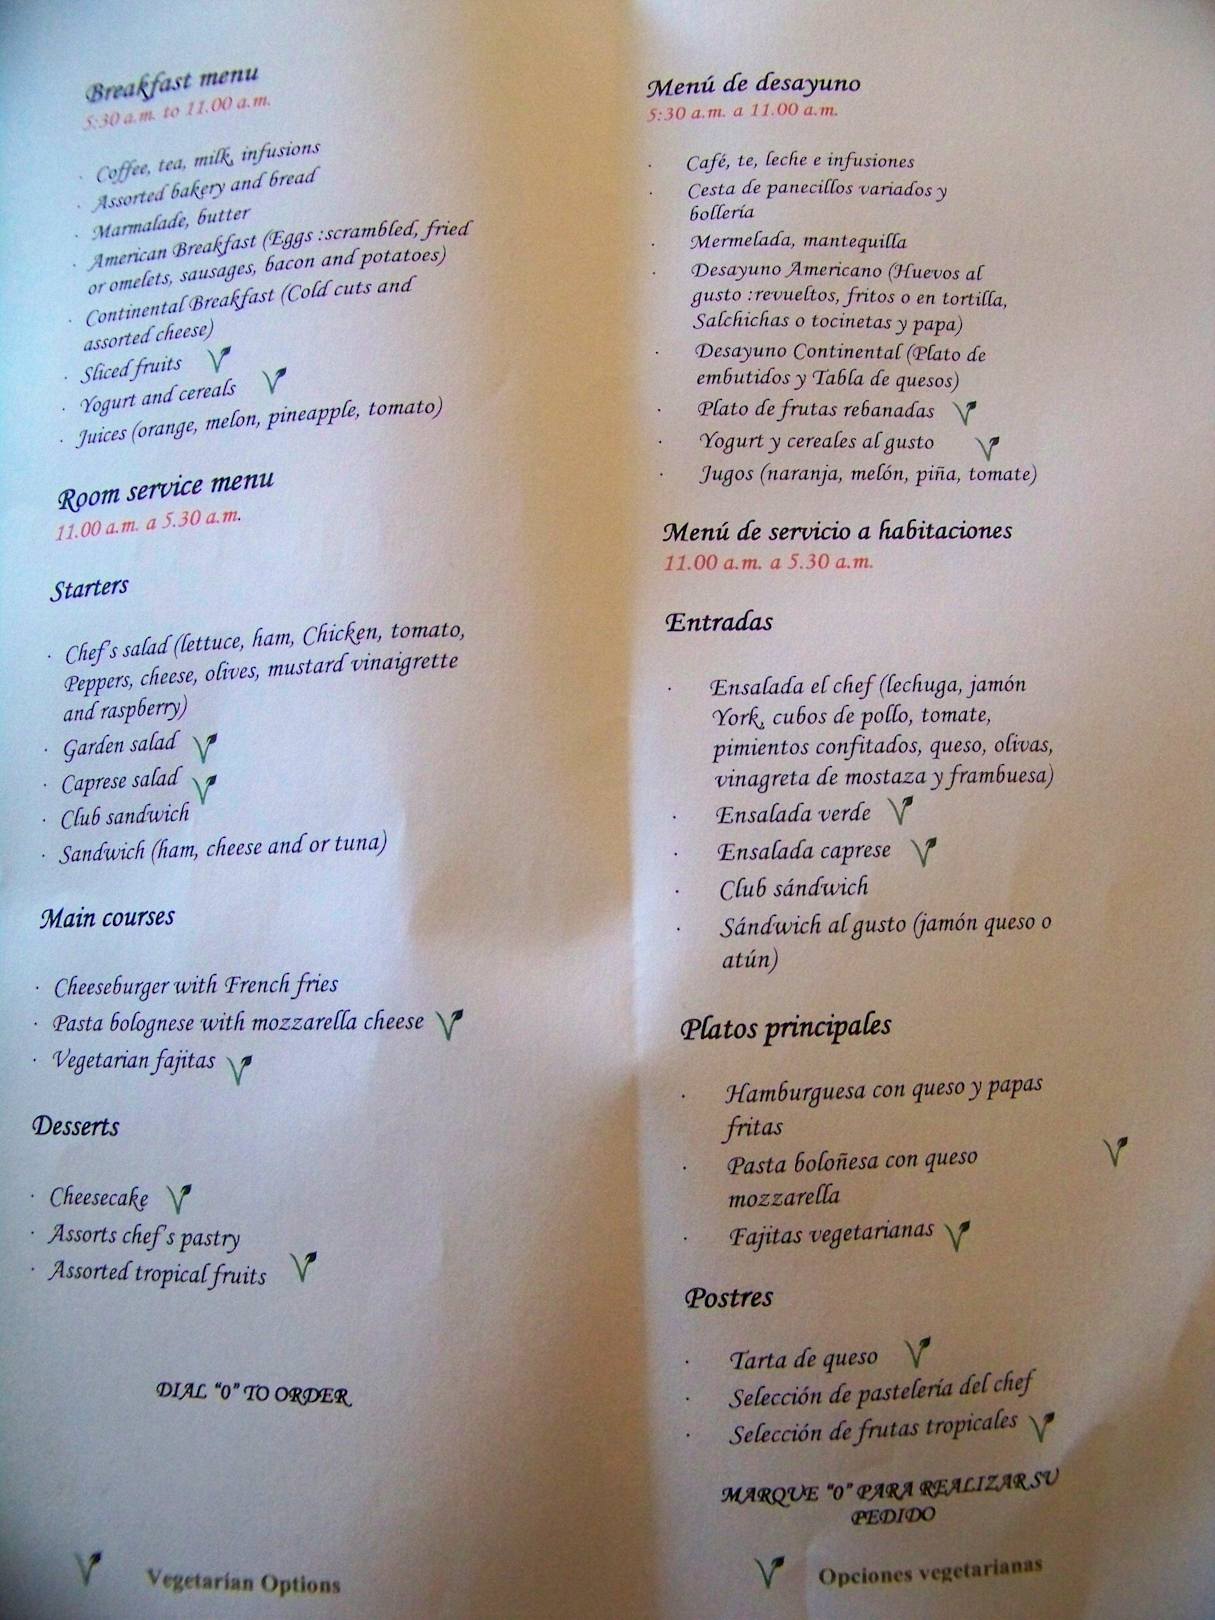 Breakfast menu
5:30 a.m. to 11.00 a.m.
· Coffee, tea, milk, infusions
· Assorted bakery and bread
· Marmalade, butter
· American Breakfast (Eggs :scrambled, fried
or omelets, sausages, bacon and potatoes)
· Continental Breakfast (Cold cuts and
assorted cheese)
· Sliced fruits
· Yogurt and cereals
· Juices (orange, melon, pineapple, tomato)
Room service menu
11.00 a.m. a 5.30 a.m.
Starters
· Chef's salad (lettuce, ham, Chicken, tomato,
Peppers, cheese, olives, mustard vinaigrette
and raspberry)
· Garden salad
· Caprese salad
· Club sandwich
· Sandwich (ham, cheese and or tuna)
Main courses
· Cheeseburger with French fries
· Pasta bolognese with mozzarella cheese
· Vegetarian fajitas
Desserts
· Cheesecake
· Assorts chef's pastry
· Assorted tropical fruits
DIAL "0" TO ORDER
Vegetarian Options
Menú de desayuno
5:30 a.m. a 11.00 a.m.
· Café, te, leche e infusiones
· Cesta de panecillos variados y
bollería
· Mermelada, mantequilla
· Desayuno Americano (Huevos al
gusto :revueltos, fritos o en tortilla,
Salchichas o tocinetas y papa)
· Desayuno Continental (Plato de
embutidos y Tabla de quesos)
· Plato de frutas rebanadas
· Yogurt y cereales al gusto
· Jugos (naranja, melón, piña, tomate)
Menú de servicio a habitaciones
11.00 a.m. a 5.30 a.m.
Entradas
· Ensalada el chef (lechuga, jamón
York, cubos de pollo, tomate,
pimientos confitados, queso, olivas,
vinagreta de mostaza y frambuesa)
· Ensalada verde
· Ensalada caprese
· Club sándwich
· Sándwich al gusto (jamón queso o
atún)
Platos principales
· Hamburguesa con queso y papas
fritas
· Pasta boloñesa con queso
mozzarella
· Fajitas vegetarianas
Postres
· Tarta de queso
· Selección de pastelería del chef
· Selección de frutas tropicales
MARQUE "0" PARA REALIZAR SU
PEDIDO
Opciones vegetarianas